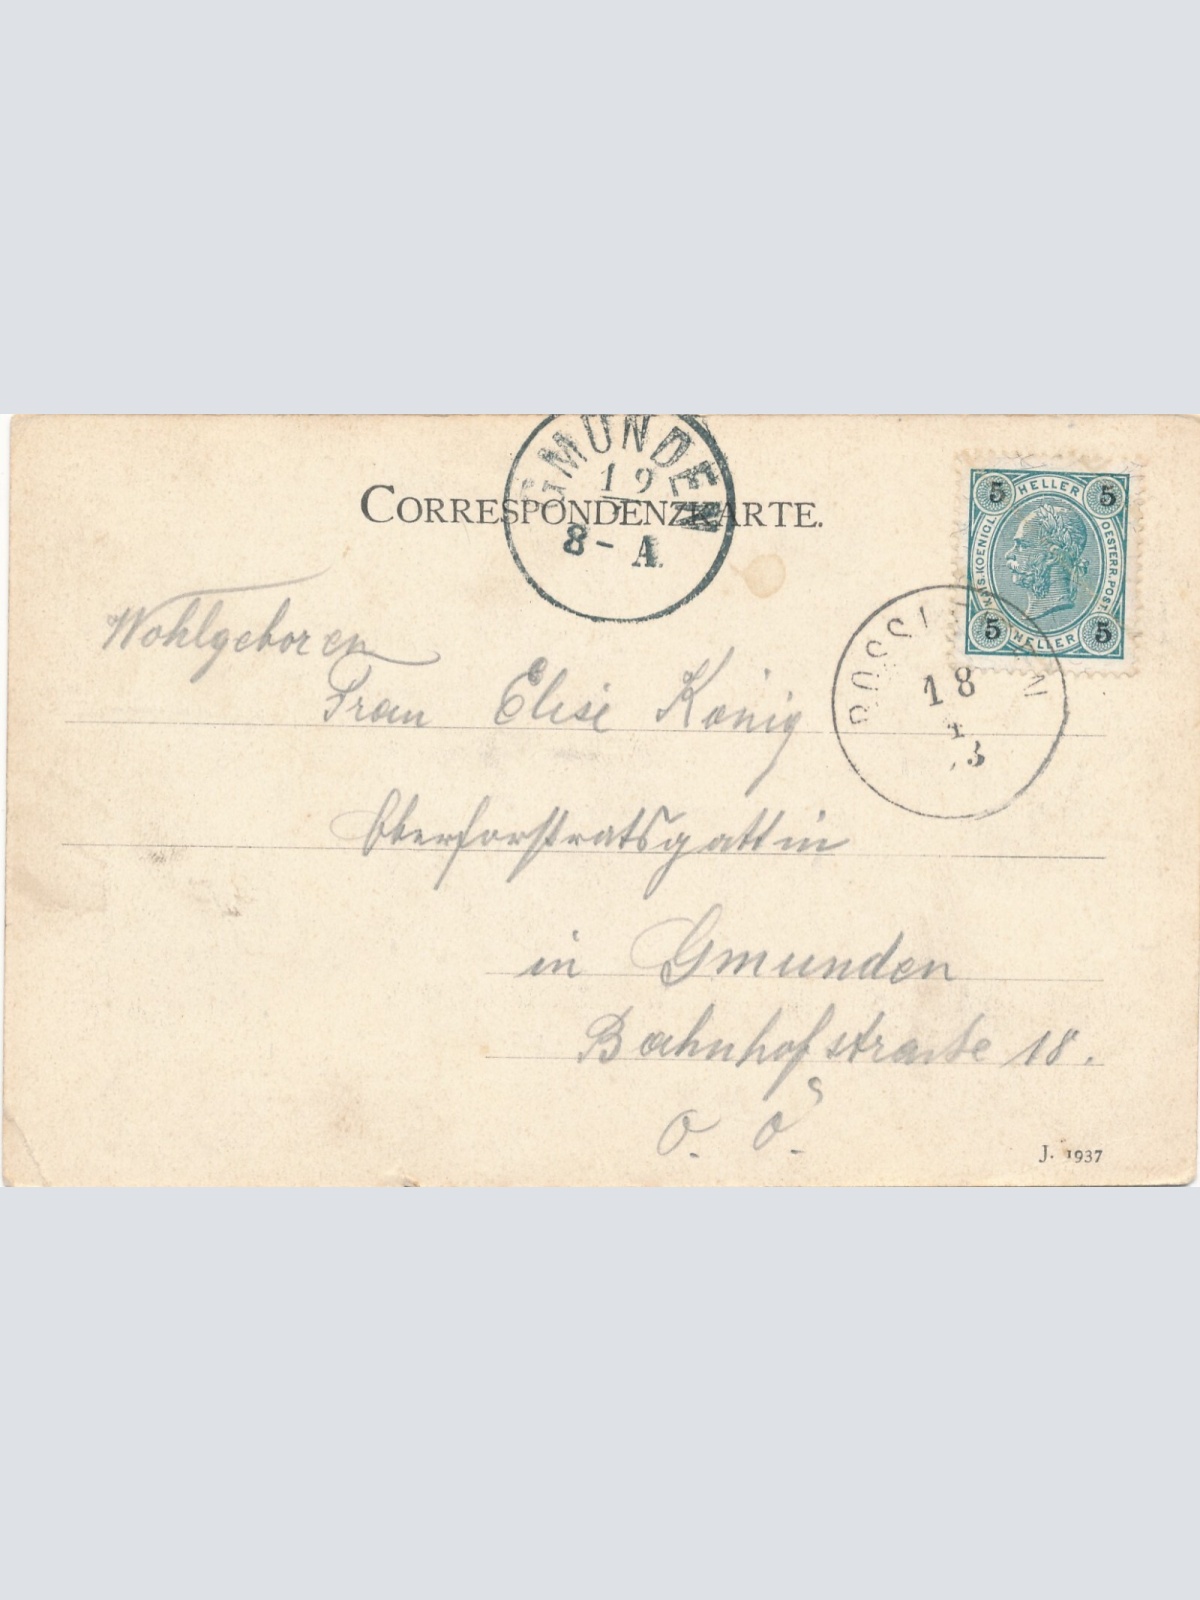 GMUNDEN
19
8-A.
CORRESPONDENZKARTE.
5 HELLER 5
KAIS. KOENIGL. OESTERR. POST
5 HELLER 5
18
4
3
Wohlgeboren
Frau Elise König
Oberforstratsgattin
in Gmunden
Bahnhofstraße 18.
O. Ö.
J. 1937